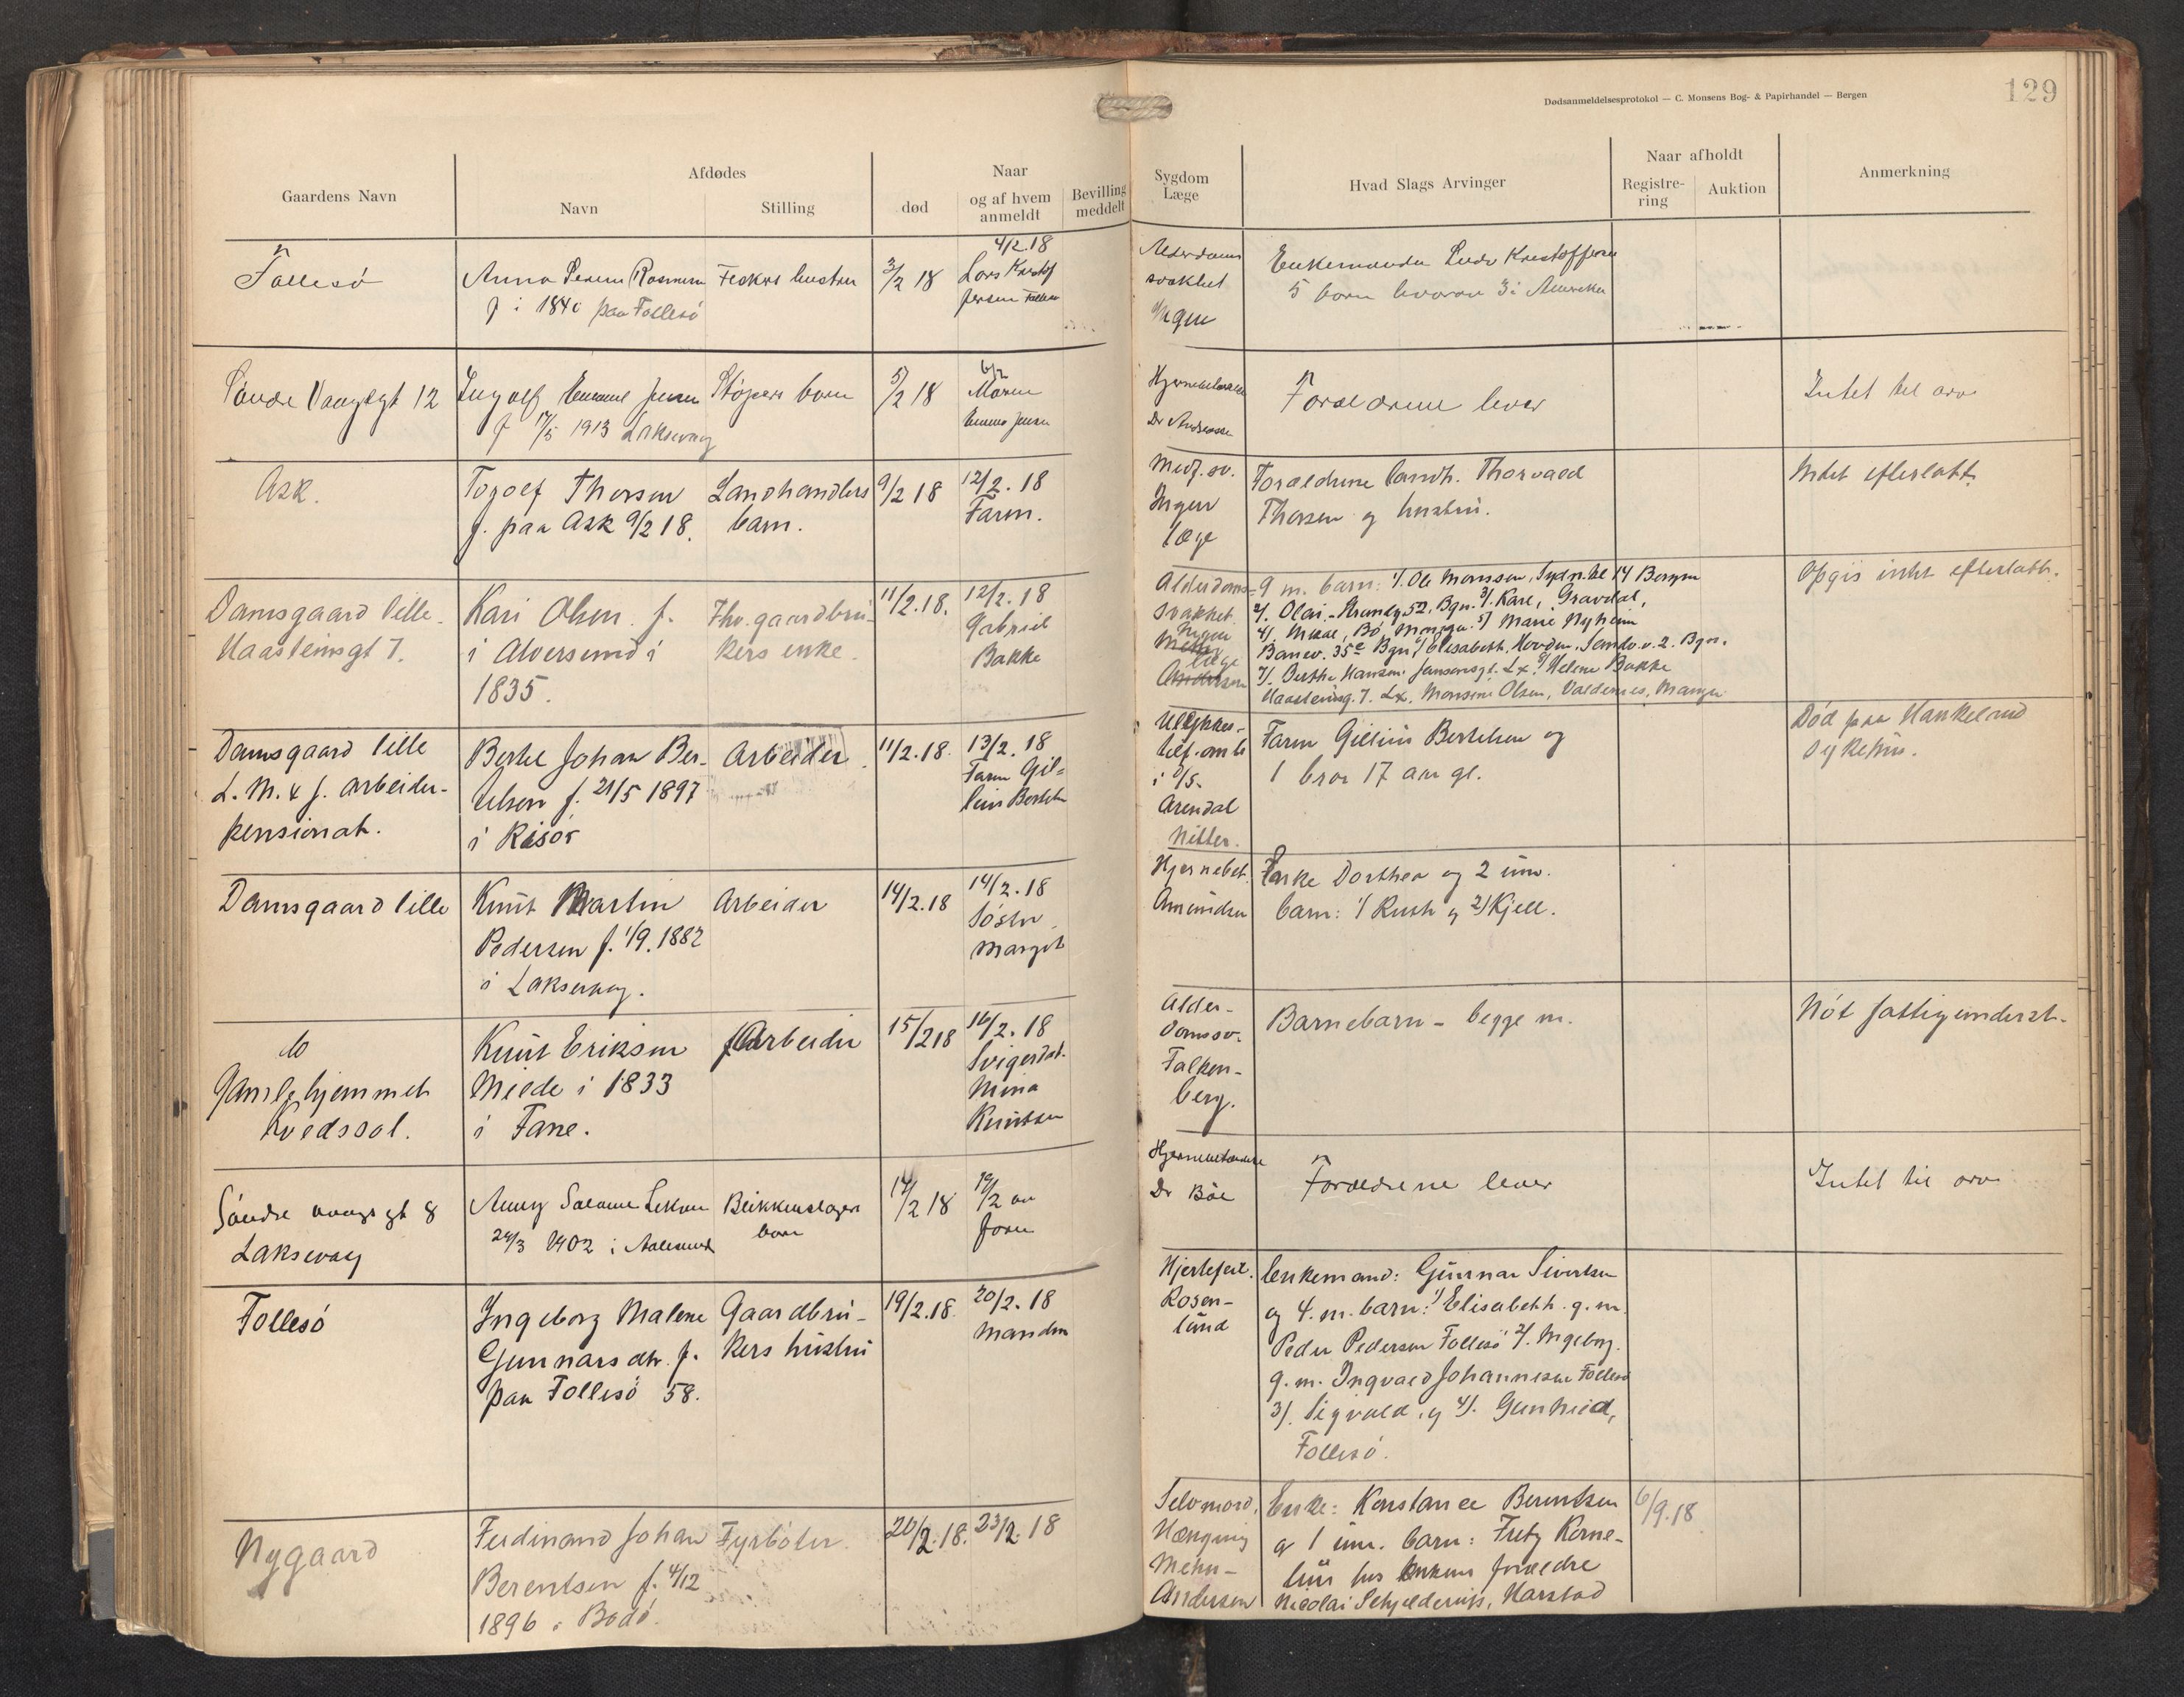 Dødsanmeldelsesprotokol — C. Monsens Bog- & Papirhandel — Bergen
129
Gaardens Navn
Afdødes
Navn
Stilling
død
Naar
og af hvem
anmeldt
Bevilling
meddelt
Sygdom
Læge
Hvad Slags Arvinger
Naar afholdt
Registre-
ring
Auktion
Anmerkning
Follesö
Anna
f i 1840 paa Follesö
Fiskers hustru
3/2 18
4/2.18
Lars Kristof
fersen
Alderdoms
svakhet
Ingen
Enkemanden Kristoffersen
5 born hvorav 3 i Amerika
Söndre Vaagsgt 12
Ingolf Jensen
f 17/5 1913 Laksevaag
Støpers barn
5/2 18
6/2
Moren
Emma Jensen
Hjernebetændelse
Forældrene lever
Intet til arv
Ask.
Torolf Thorsen
f. paa Ask 9/2 18.
Landhandlers
barn.
9/2 18
12/2.18
Faren.
Medf. sv.
Ingen
læge
Forældrene landh. Thorvald
Thorsen og hustru.
Intet efterlatt
Damsgaard lille.
Haasteinsgt 7.
Kari Olsen f.
i Alversund i
1835.
Fhv. gaardbru-
kers enke.
11/2.18.
12/2.18
Gabriel
Bakke
Alderdoms-
svakhet.
Ingen
læge
Andersen
9 m. barn: 1/. Ole Monssen, 14 Bergen
2/. Olai, 52, Bgn. 3/. Karl, Gravdal,
4/. Bö, Manger. 5/ Marie Nyheim
35e Bgn. Elisabeth 2. Bgn.
7/. Berthe Hansen Jansonsgt. Lx. 8/ Helene Bakke
Haasteinsg. 7. Lx. Monsine Olsen, Valdernes, Manger
Opgis intet efterlatt.
Damsgaard lille
L. M. & J. arbeider-
pensionat.
Bertel Johan Ber-
telsen f. 21/5 1897
i Risör
Arbeider
11/2.18.
13/2.18
Faren Gil-
Bertelsen
Ulykkes-
i D/S.
Arendal
Nitter.
Faren Bertelsen og
1 bror 17 aar gl.
Död paa Haukeland
sykehus.
Damsgaard lille
Knut Martin
Pedersen f. 1/9. 1882
i Laksevaag.
Arbeider
14/2.18
14/2.18
Söster
Margit
Hjernebet.
Amundsen
Enke Dorthea og 2 um.
barn: 1/ Ruth og 2/ Kjell.
do
Gamlehjemmet
Kvedssol.
Knut Eriksen
Milde i 1833
i Fane.
Arbeider
15/2 18
16/2.18
Svigerdat.
Mina
Knutsen
Alder-
domssv.
Falken-
berg.
Barnebarn - begge m.
Nöt fattigunderst.
Söndre vaags gt 8
Laksevaag
24/3 1902 i Aalesund
Blikkenslagers
barn
14/2 18
19/2 av
faren
Hjernebetændelse
Dr Böe
Forældrene lever
Intet til arv
Follesö
Ingeborg Malene
Gunnarsdtr. f.
paa Follesö 58.
Gaardbru-
kers hustru
19/2.18.
20/2.18
Manden
Hjertefeil.
Rosen-
lund
Enkemand: Gunnar Sivertsen
og 4. m. barn: 1/ Elisabeth. g. m.
Peder Pedersen Follesö 2/. Ingeborg.
g. m. Ingvald Johannesen Follesö
3/. Sigvald. og 4/. Gunhild,
Follesö.
Nygaard
Ferdinand Johan
Berentsen f. 4/12
1896 i Bodö.
Fyrböter.
20/2.18.
23/2.18
Selvmord.
Hængning
Mehn-
Andersen
Enke: Konstance Berentsen
og 1 um. barn: Fritz Korne-
lius hos enkens forældre
Nicolai Schjelderups, Harstad
6/9.18